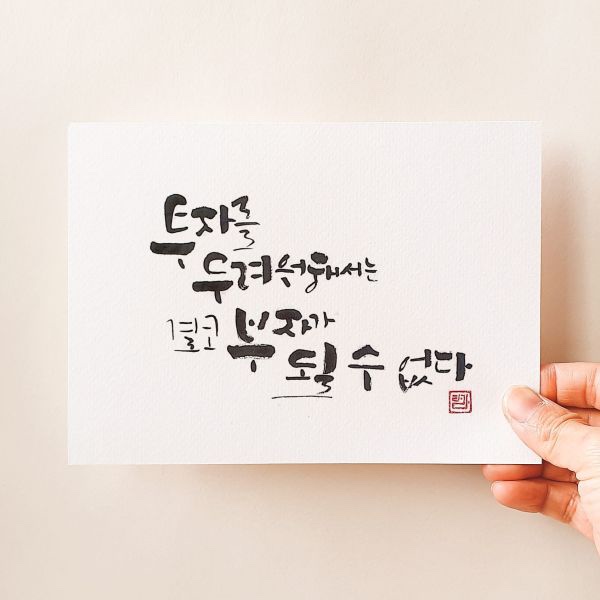 투자를
두려워해서는
결코 부자가
될 수 없다